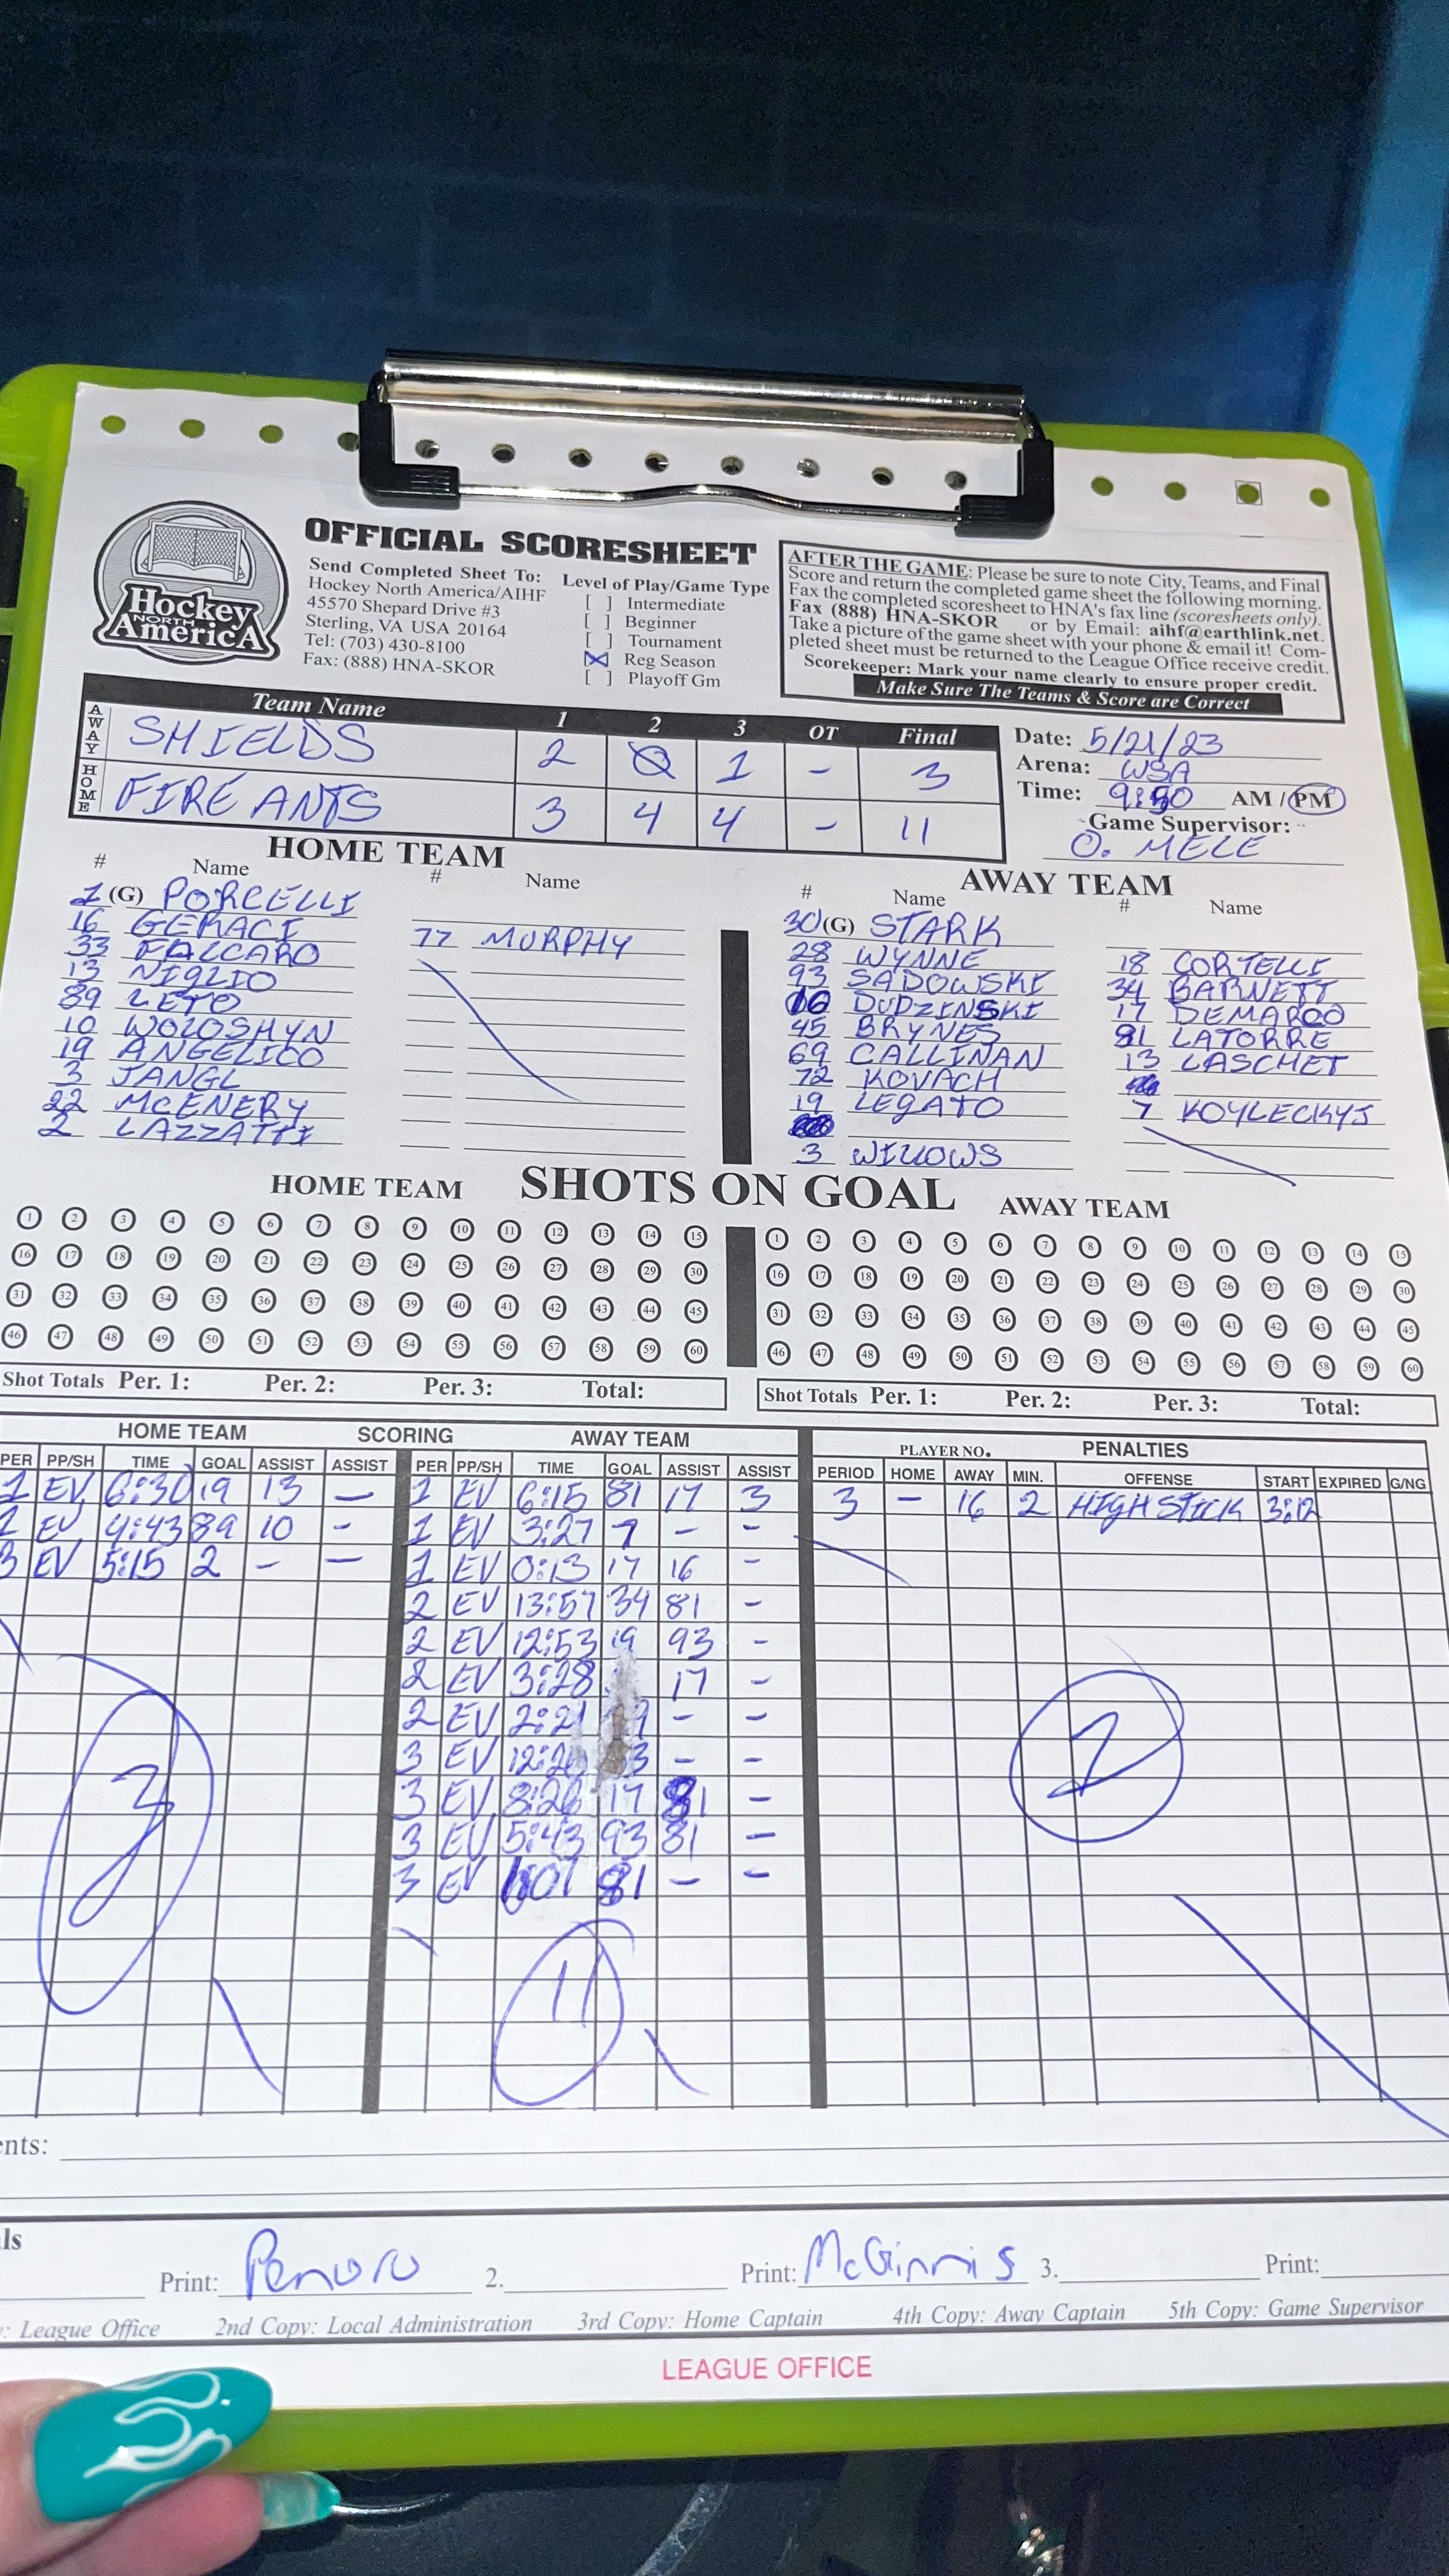 OFFICIAL SCORESHEET
Hockey
NORTH
AmericA
Send Completed Sheet To:
Hockey North America/AIHF
45570 Shepard Drive #3
Sterling, VA USA 20164
Tel: (703) 430-8100
Fax: (888) HNA-SKOR
Level of Play/Game Type
[ ] Intermediate
[ ] Beginner
[ ] Tournament
[X] Reg Season
[ ] Playoff Gm
AFTER THE GAME: Please be sure to note City, Teams, and Final
Score and return the completed game sheet the following morning.
Fax the completed scoresheet to HNA's fax line (scoresheets only).
Fax (888) HNA-SKOR or by Email: aihf@earthlink.net.
Take a picture of the game sheet with your phone & email it! Com-
pleted sheet must be returned to the League Office receive credit.
Scorekeeper: Mark your name clearly to ensure proper credit.
Make Sure The Teams & Score are Correct
Team Name 1 2 3 OT Final
AWAY SHIELDS 2 0 1 - 3
HOME FIRE ANTS 3 4 4 - 11
Date: 5/21/23
Arena: WSA
Time: AM / PM
Game Supervisor:
O. MELE
HOME TEAM
# Name # Name
1 (G) PORCELLI
16 GERACI
33 FALCARO 77 MURPHY
13 NIGLIO
89 LETO
10 WOLOSHYN
19 ANGELICO
3 JANGL
22 McENERY
2 LAZZATTI
AWAY TEAM
# Name # Name
30 (G) STARK
28 WYNNE 18 CORTELLI
93 SADOWSKI 34 BARNETT
16 DUDZINSKI 17 DEMARCO
45 BRYNES 81 LATORRE
69 CALLINAN 13 LASCHET
72 KOVACH
19 LEGATO 7 KOYLECKYJ
3 WILLOWS
HOME TEAM SHOTS ON GOAL AWAY TEAM
1 2 3 4 5 6 7 8 9 10 11 12 13 14 15 1 2 3 4 5 6 7 8 9 10 11 12 13 14 15
16 17 18 19 20 21 22 23 24 25 26 27 28 29 30 16 17 18 19 20 21 22 23 24 25 26 27 28 29 30
31 32 33 34 35 36 37 38 39 40 41 42 43 44 45 31 32 33 34 35 36 37 38 39 40 41 42 43 44 45
46 47 48 49 50 51 52 53 54 55 56 57 58 59 60 46 47 48 49 50 51 52 53 54 55 56 57 58 59 60
Shot Totals Per. 1: Per. 2: Per. 3: Total: Shot Totals Per. 1: Per. 2: Per. 3: Total:
HOME TEAM SCORING AWAY TEAM PLAYER NO. PENALTIES
PER PP/SH TIME GOAL ASSIST ASSIST PER PP/SH TIME GOAL ASSIST ASSIST PERIOD HOME AWAY MIN. OFFENSE START EXPIRED G/NG
1 EV 6:30 19 13 - 1 EV 6:15 81 17 3 3 - 16 2 HIGH STICK 3:12
EV 4:43 89 10 - 1 EV 3:27 7 - -
3 EV 5:15 2 - - 1 EV 0:13 17 16 -
2 EV 13:57 34 81 -
2 EV 12:53 19 93 -
2 EV 3:28 17 -
2 EV 2:21 - -
3 EV - -
3 EV 8:26 17 81 -
3 EV 5:43 93 81 -
3 EV 81 - -
3
11
2
ents:
ls
Print: 2. Print: McGinnis 3. Print:
: League Office 2nd Copy: Local Administration 3rd Copy: Home Captain 4th Copy: Away Captain 5th Copy: Game Supervisor
LEAGUE OFFICE